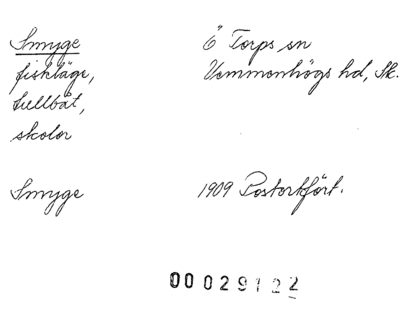 Smyge Ö Torps sn
fiskläge, Vemmenhögs hd, Sk.
tullbåt,
skolor
Smyge 1909 Postortfört.
00029122